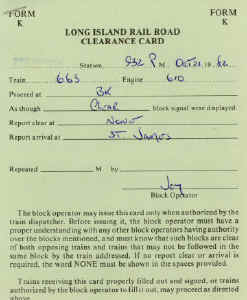 FORM K FORM K
LONG ISLAND RAIL ROAD
CLEARANCE CARD
Station, 932 P M. Oct 21, 19
Train 663 Engine 610
Proceed at BK
As though Clear block signal were displayed.
Report clear at NONE
Report arrival at ST James
Repeated M by
Joy
Block Operator
The block operator may issue this card only when authorized by the
train dispatcher. Before issuing it, the block operator must have a
proper understanding with any other block operators having authority
over the blocks mentioned, and must know that such blocks are clear
of both opposing trains and trains that may not be followed in the
same block by the train addressed. If no report clear or arrival is
required, the word NONE must be shown in the spaces provided.
Trains receiving this card properly filled out and signed, or trains
authorized by the block operator to fill it out, may proceed as directed
above.